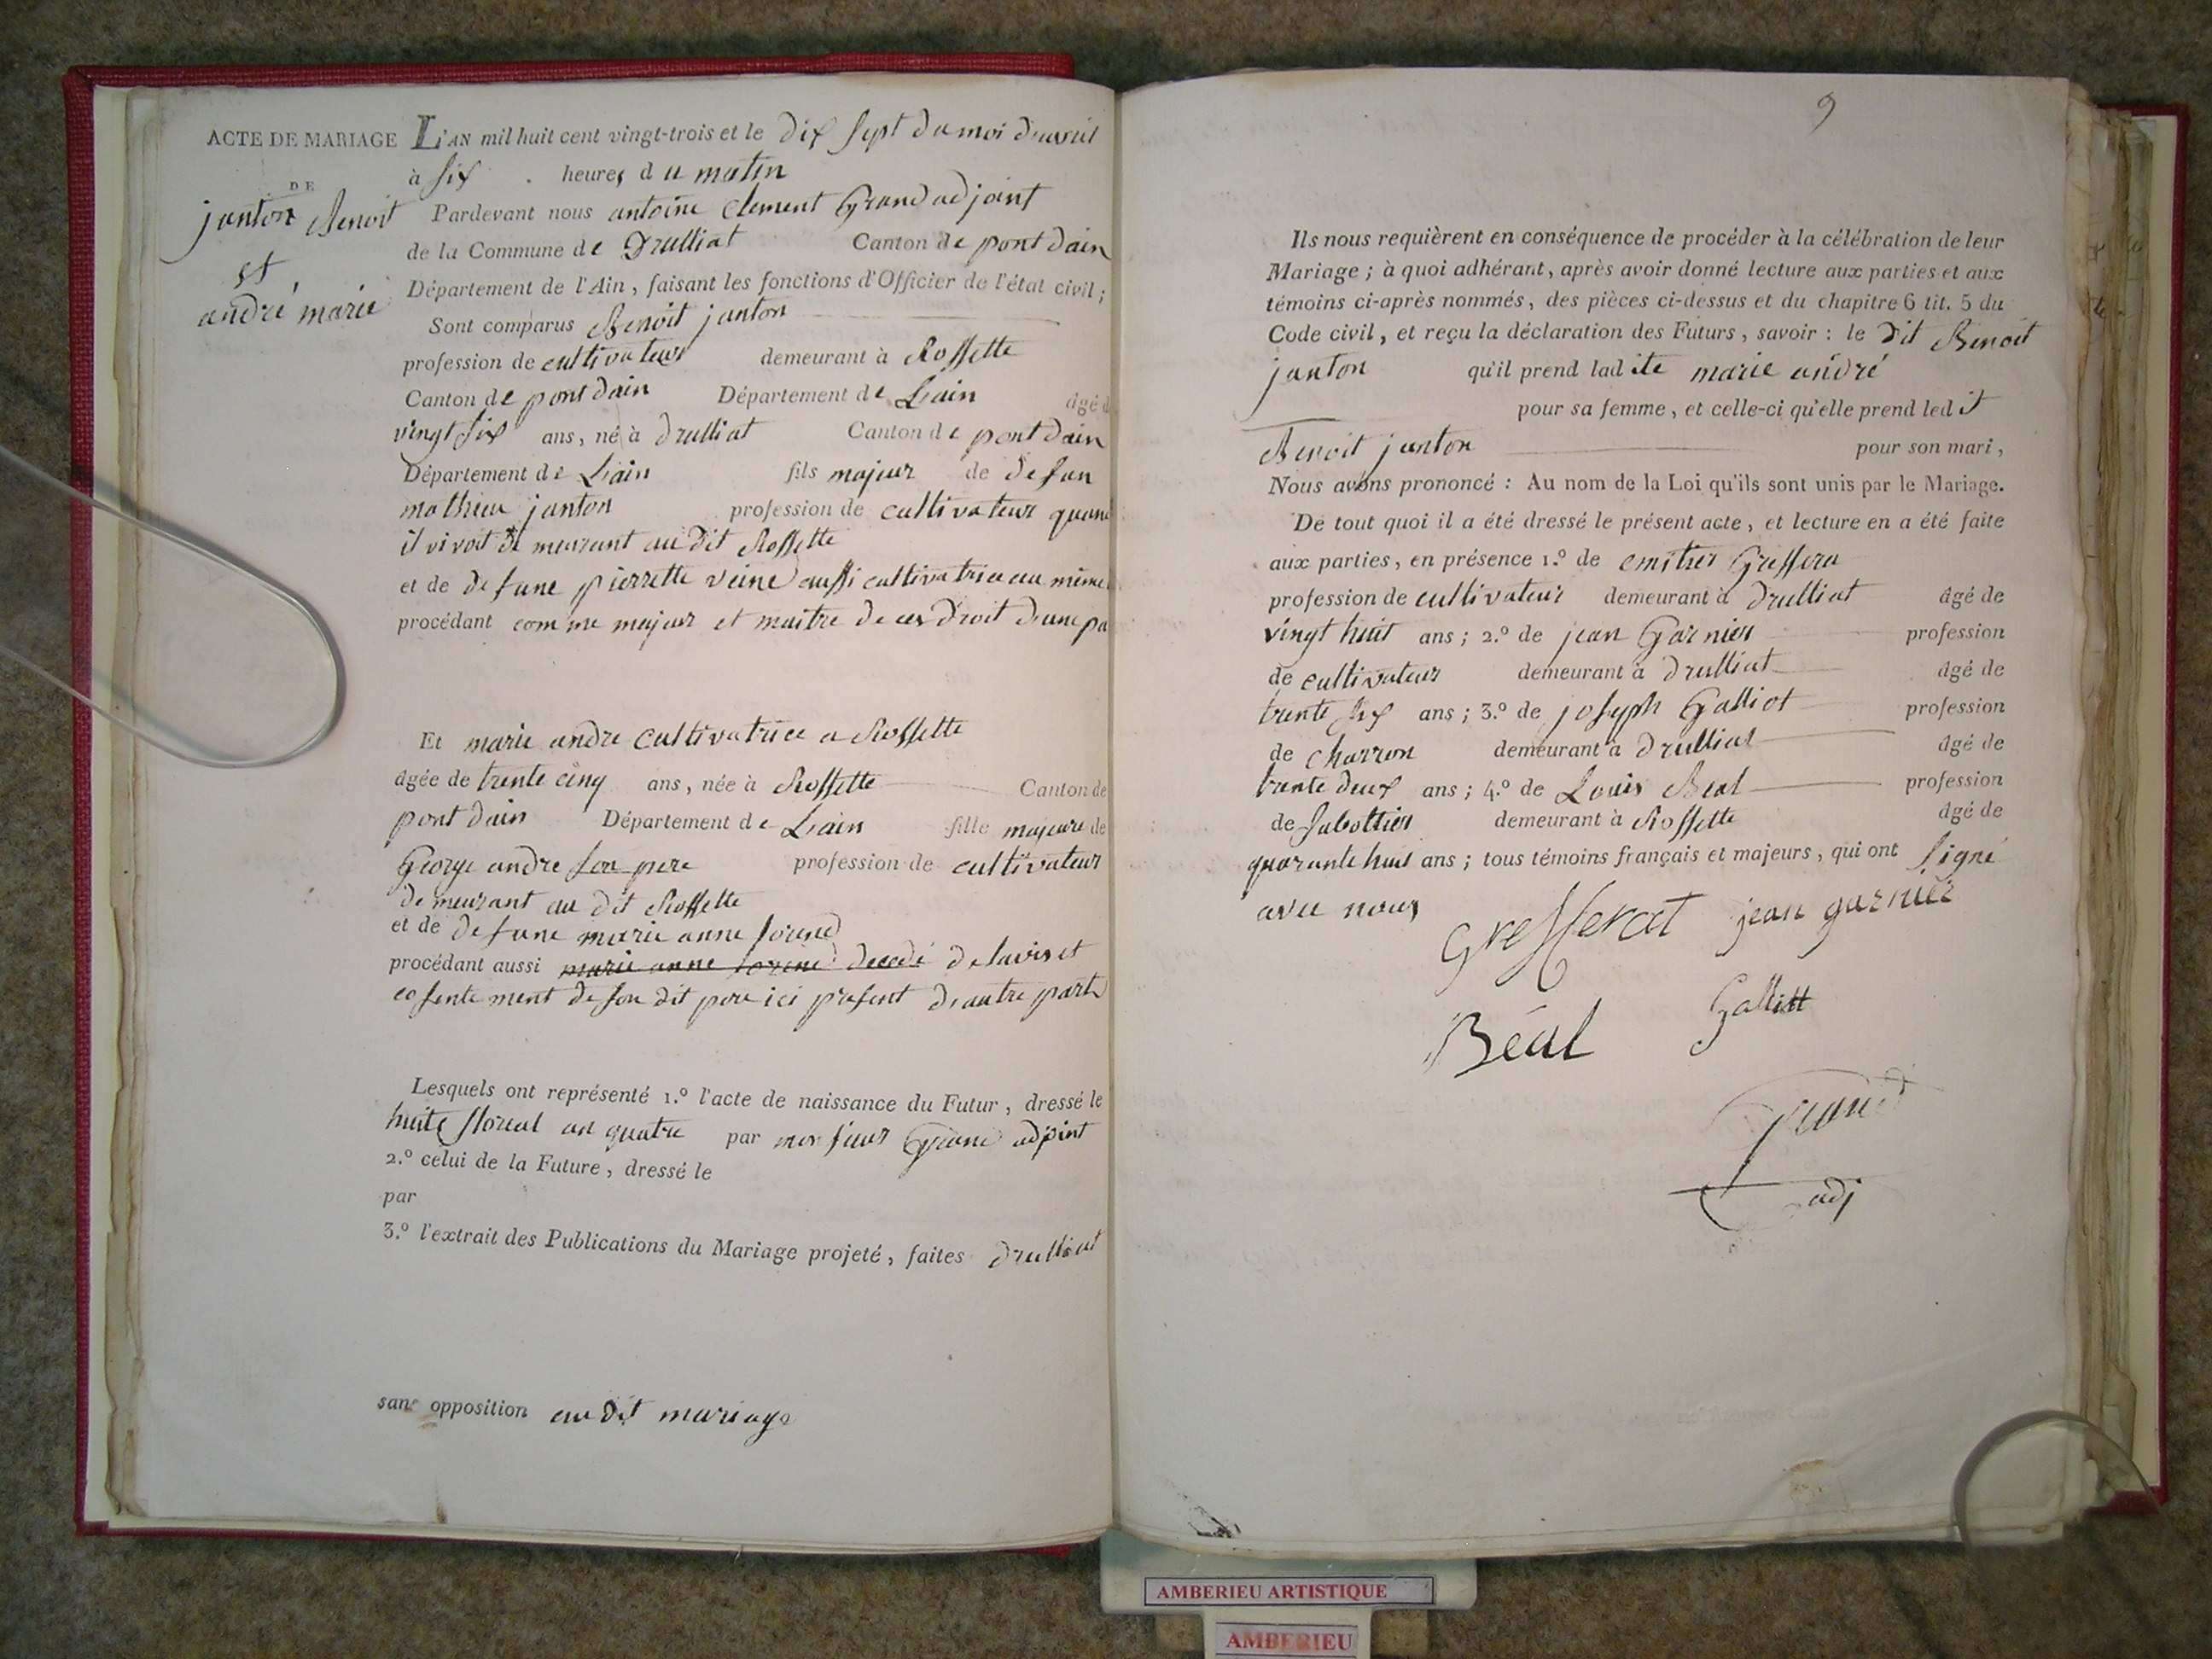 ACTE DE MARIAGE
DE
janton Benoit
et
andré marie
L'AN mil huit cent vingt-trois et le dix sept du moi d'avril
à six heures du matin
Pardevant nous antoine Clement Grand adjoint
de la Commune de Drulliat Canton de pont dain
Département de l'Ain, faisant les fonctions d'Officier de l'état civil ;
Sont comparus Benoit janton
profession de cultivateur demeurant à Rossette
Canton de pont dain Département de Lain âgé d
vingt six ans, né à drulliat Canton de pont dain
Département de Lain fils majeur de defun
mathieu janton profession de cultivateur quand
il vivoit de meurant au dit Rossette
et de defune pierrette veine aussi cultivatrice au mime
procédant comme majeur et maitre de ces droit d'une pa
Et marie andre Cultivatrice a Rossette
âgée de trente cinq ans, née à Rossette Canton de
pont dain Département de Lain fille majeure de
George andre son pere profession de cultivateur
de meurant au dit Rossette
et de defune marie anne
procédant aussi marie anne decedé de lavis et
cosente ment de son dit pere ici present d'autre part
Lesquels ont représenté 1.º l'acte de naissance du Futur, dressé le
huite floreal an quatre par monsieur Grand adjoint
2.º celui de la Future, dressé le
par
3.º l'extrait des Publications du Mariage projeté, faites drulliat
sans opposition au dit mariage
9
Ils nous requièrent en conséquence de procéder à la célébration de leur
Mariage ; à quoi adhérant, après avoir donné lecture aux parties et aux
témoins ci-après nommés, des pièces ci-dessus et du chapitre 6 tit. 5 du
Code civil, et reçu la déclaration des Futurs, savoir : le dit Benoit
janton qu'il prend ladite marie andré
pour sa femme, et celle-ci qu'elle prend ledit
Benoit janton pour son mari,
Nous avons prononcé : Au nom de la Loi qu'ils sont unis par le Mariage.
De tout quoi il a été dressé le présent acte, et lecture en a été faite
aux parties, en présence 1.º de
profession de cultivateur demeurant à drulliat âgé de
vingt huit ans ; 2.º de jean Garnier profession
de cultivateur demeurant à drulliat âgé de
trente six ans ; 3.º de joseph Galliot profession
de charron demeurant à drulliat âgé de
trente deux ans ; 4.º de Louis Beal profession
de sabottier demeurant à Rossette âgé de
quarante huit ans ; tous témoins français et majeurs, qui ont signé
avec nous
Greffercat jean garnier
Béal Galliott
Grand
adj
AMBERIEU ARTISTIQUE
AMBERIEU